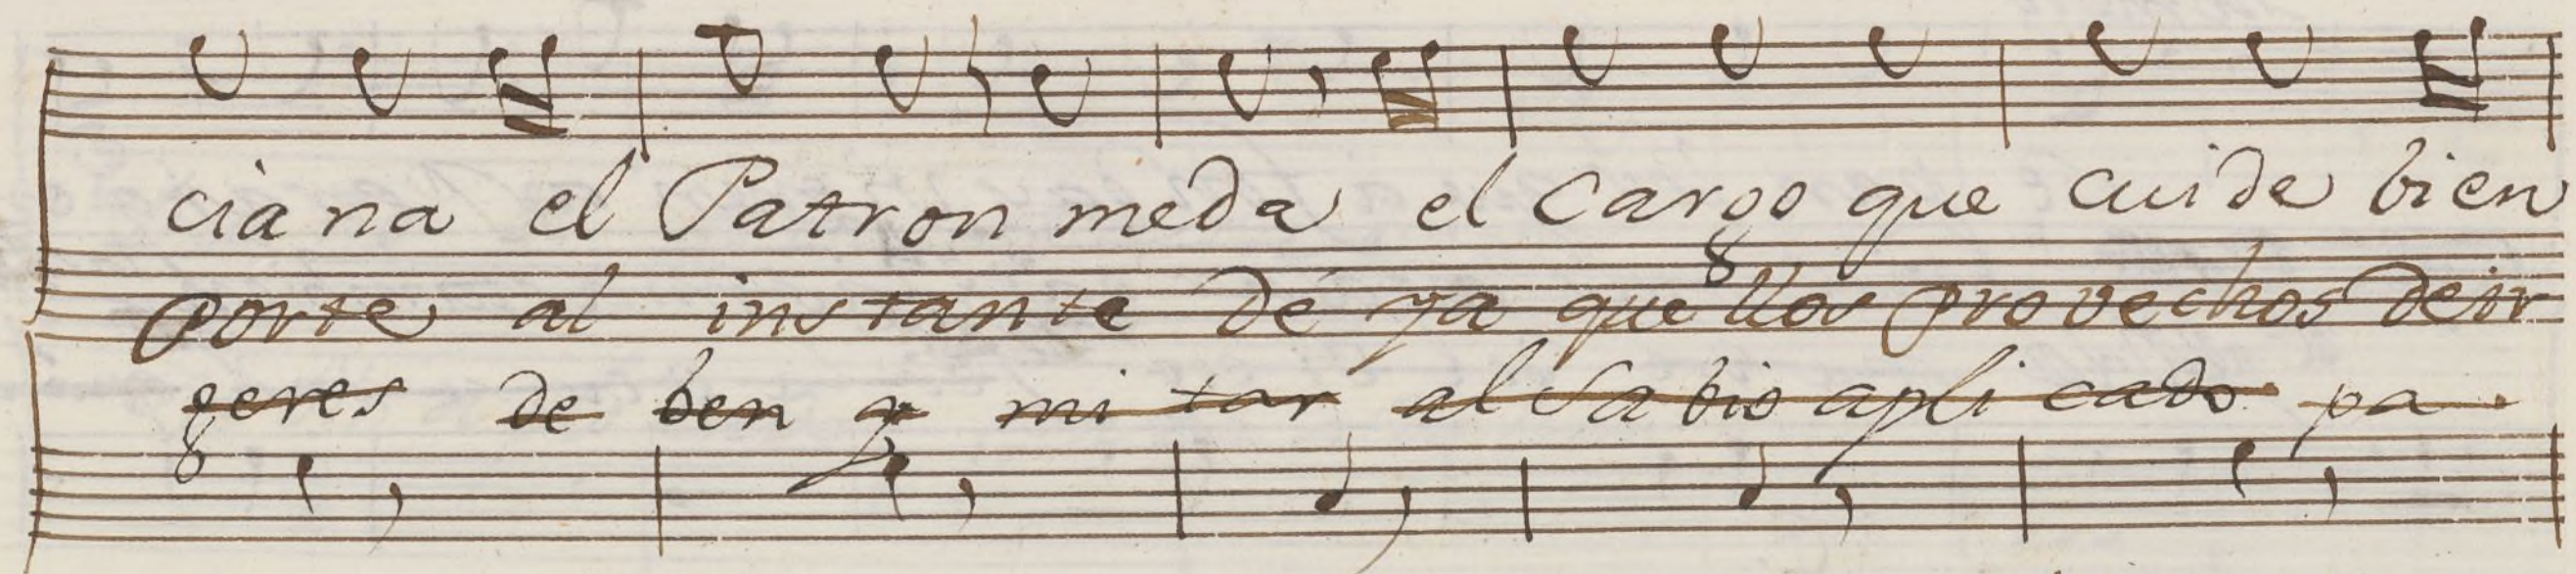 ciana el Patron meda el Cargo que cuide bien
porte al instante de ya que llos provechos deir
geres de ben y mi tar al Sa bio apli cado pa